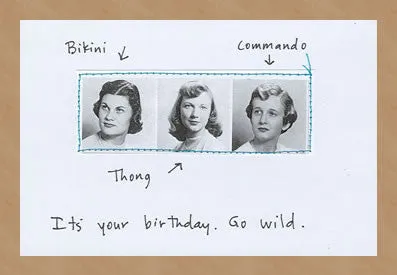 Bikini
Commando
Thong
It's your birthday. Go wild.